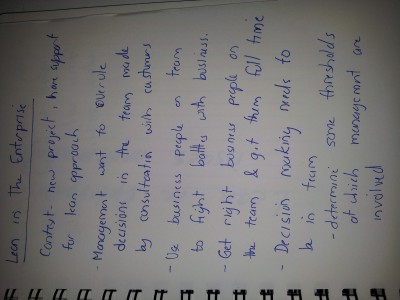 Lean in The Enterprise
Context - new project, have support
for lean approach
- Management want to overrule
decisions in the team made
by consultation with customers
- Use business people on team
to fight battles with business.
- Get right business people on
the team & get them full time
- Decision making needs to
be in team
- determine some thresholds
at which management are
involved